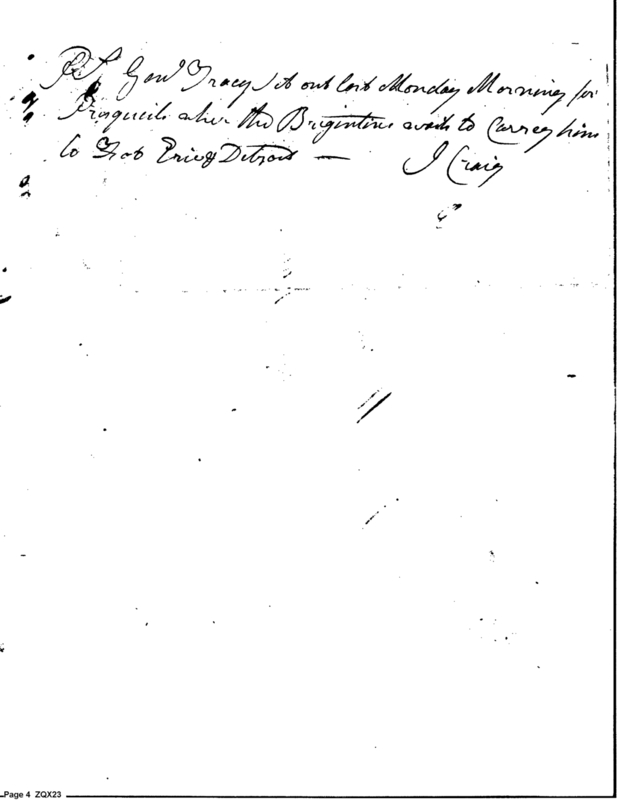 PS Genl Tracy set out last Monday Morning for
Presqueile where the Brigintine waits to Carrey him
to Fort Erie & Detroit — J Craig
Page 4 ZQX23